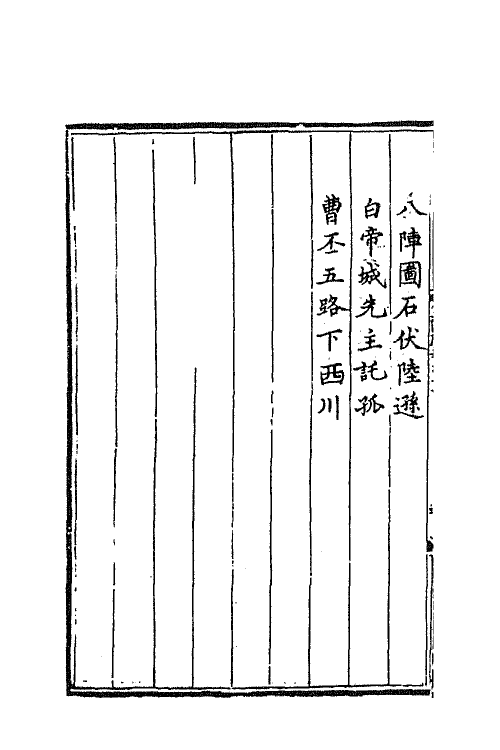 八陣圖石伏陸遜
白帝城先主託孤
曹丕五路下西川